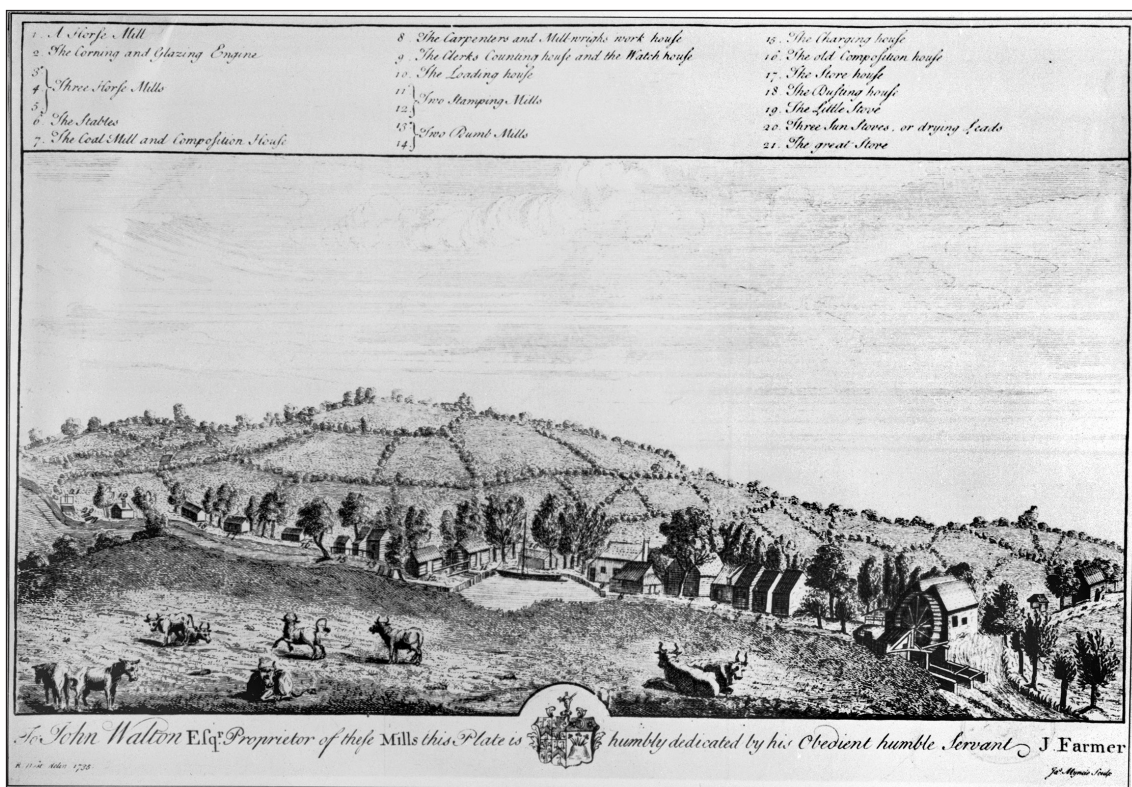 1. A Horse Mill
2. The Corning and Glazing Engine
3
4 Three Horse Mills
5
6 The Stables
7. The Coal Mill and Composition House
8 The Carpenters and Millwrighs work house
9. The Clerks Counting house and the Watch house
10. The Loading house
11
12 Two Stamping Mills
13
14 Two Dumb Mills
15. The Charging house
16. The old Composition house
17. The Store house
18. The Dusting house
19. The Little Stove
20. Three Sun Stoves, or drying Leads
21. The great Stove
To John Walton Esqr. Proprietor of these Mills this Plate is humbly dedicated by his Obedient humble Servant J. Farmer
delin 1735
Mynde Sculp